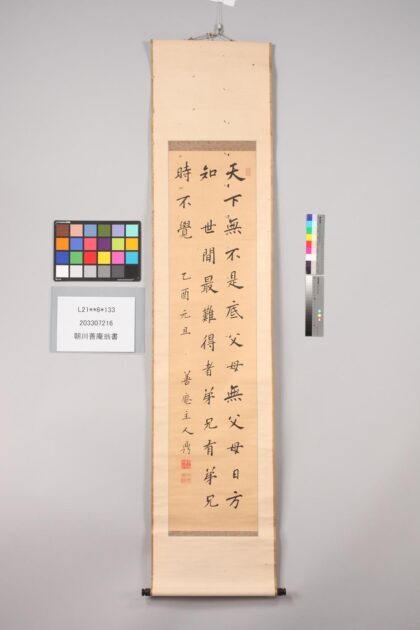 天下無不是底父母無父母日方
知世間最難得者弟兄有弟兄
時不覺 乙酉元旦 善庵主人鼎
L21**6*133
203307216
朝川善庵翁書